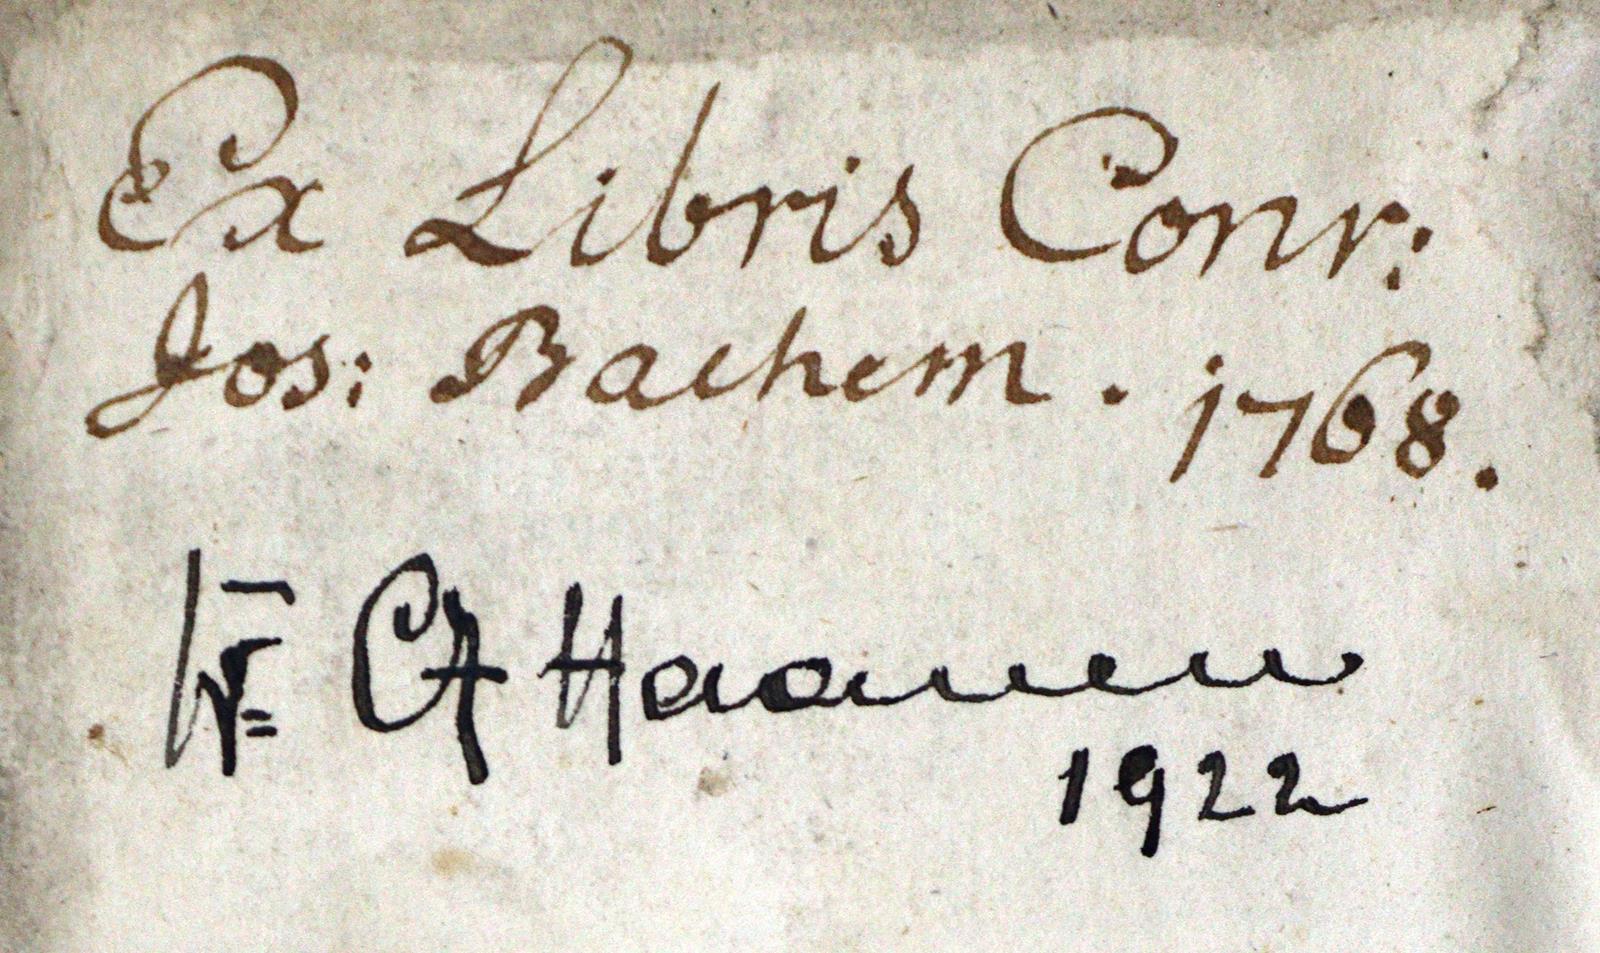 Ex Libris Conr:
Jos: Bachem. 1768.
Haanen
1922